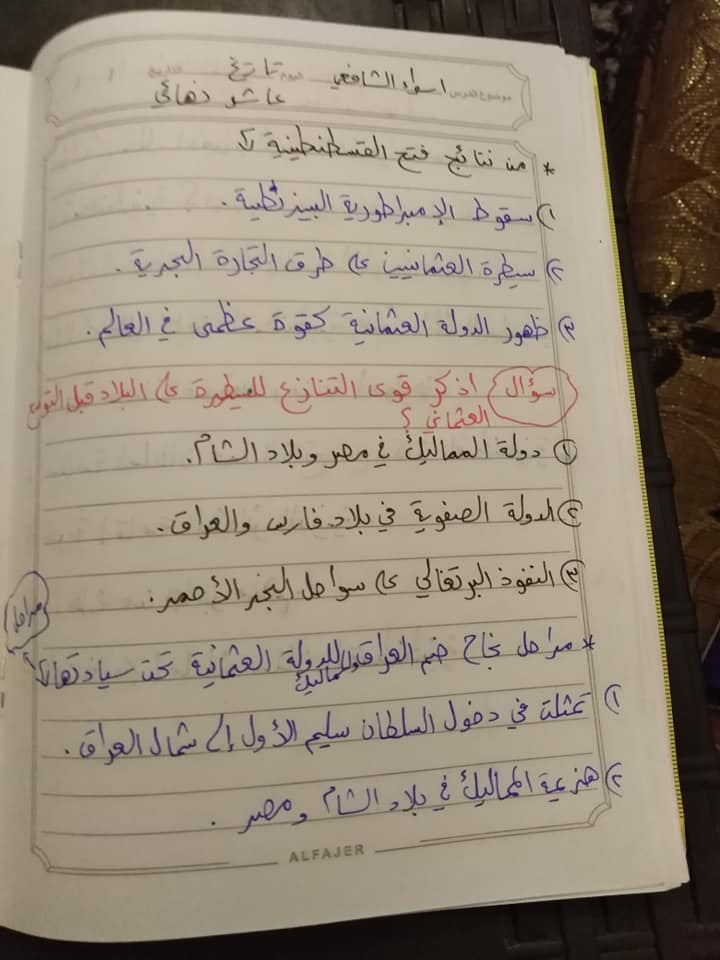 موضوع الدرس اسراء الشافعي اليوم تاريخ التاريخ
عاشر نهائي
* من نتائج فتح القسطنطينية :
١) سقوط الإمبراطورية البيزنطية .
٢) سيطرة العثمانيين على طرق التجارة البحرية .
٣) ظهور الدولة العثمانية كقوة عظمى في العالم .
سؤال اذكر قوى التنازع للسيطرة على البلاد قبل التوسع
العثماني ؟
١) دولة المماليك في مصر وبلاد الشام .
٢) الدولة الصفوية في بلاد فارس والعراق .
٣) النفوذ البرتغالي على سواحل البحر الأحمر .
مراحل
* مراحل نجاح ضم العراق والمماليك للدولة العثمانية تحت سيادتها :
١) تمثلت في دخول السلطان سليم الأول إلى شمال العراق .
٢) هزيمة المماليك في بلاد الشام ومصر .
ALFAJER